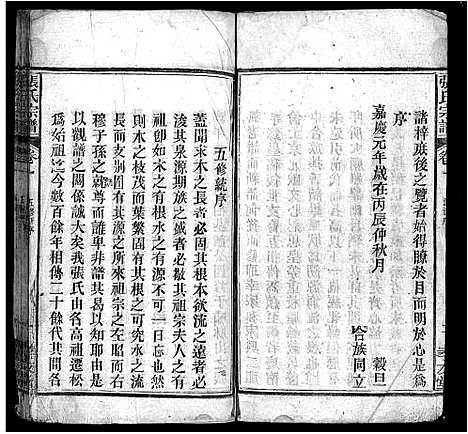 張氏宗譜
卷一
諸梓庶後之覽者始得瞭於目而明於心是爲
序
嘉慶元年歲在丙辰仲秋月
穀旦
合族同立
五修統序
蓋聞求木之長者必固其根本欲流之遠者必
浚其泉源期族之盛者必敬其祖宗夫人之有
祖宗如木之有根水之有源不可一日忘也然
則木之枝茂而葉繁固有其根究水之流
長而支別固有其源之所來祖宗之左昭而右
穆子孫之尊而誰卑非譜其曷以知耶由是
以觀譜之關係誠大矣我張氏由各高遷松
爲始祖迄今數百餘年相傳二十餘代其間名
張氏宗譜
卷一
五修統序